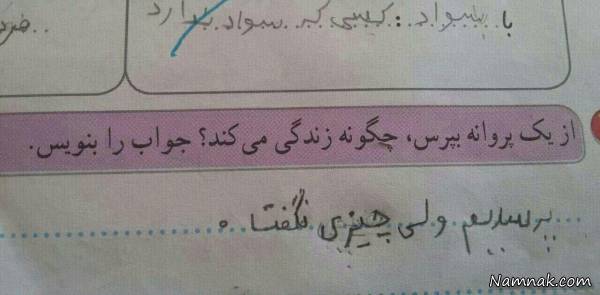 با سواد : کسی که سواد دارد
از یک پروانه بپرس، چگونه زندگی می‌کند؟ جواب را بنویس.
پرسیدم ولی چیزی نگفتا.
Namnak.com